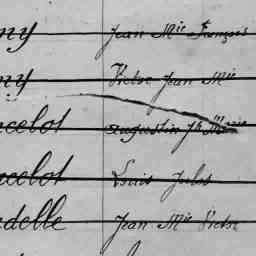 ny Jean Mie François
ny Victor Jean Mie
celot Augustin Jh Marie
celot Louis Jules
delle Jean Mie Victor